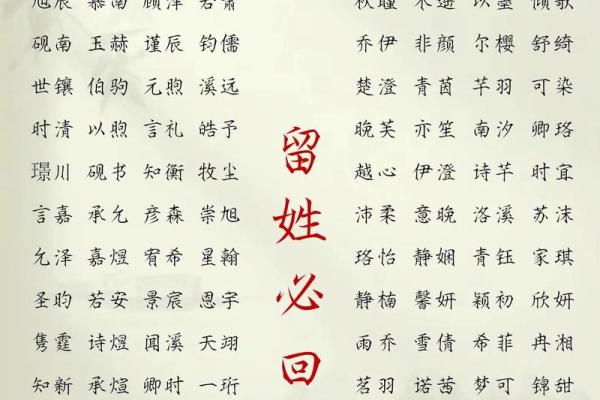 旭辰 慕南 顾泽 若萧
砚南 玉赫 谨辰 钧儒
世镶 伯驹 元煦 溪远
时清 以煦 言礼 皓予
璟川 砚书 知衡 牧尘
言嘉 承允 彦森 崇旭
允泽 嘉煜 宥希 星翰
圣昀 若安 景宸 恩宇
隽霆 诗煜 闻溪 天翊
知新 承煊 卿时 一珩
留姓必回
秋瞳 木遥 以墨 倾歌
乔伊 非颜 尔樱 舒绮
楚澄 青茵 芊羽 可染
晚芙 亦笙 南汐 卿珞
越心 伊澄 诗芊 时宜
沛柔 意晚 洛溪 苏沫
珞怡 静娴 青钰 家琪
静楠 馨妍 颖初 欣妍
雨乔 雪倩 希菲 冉湘
茗羽 诺茜 梦可 锦甜